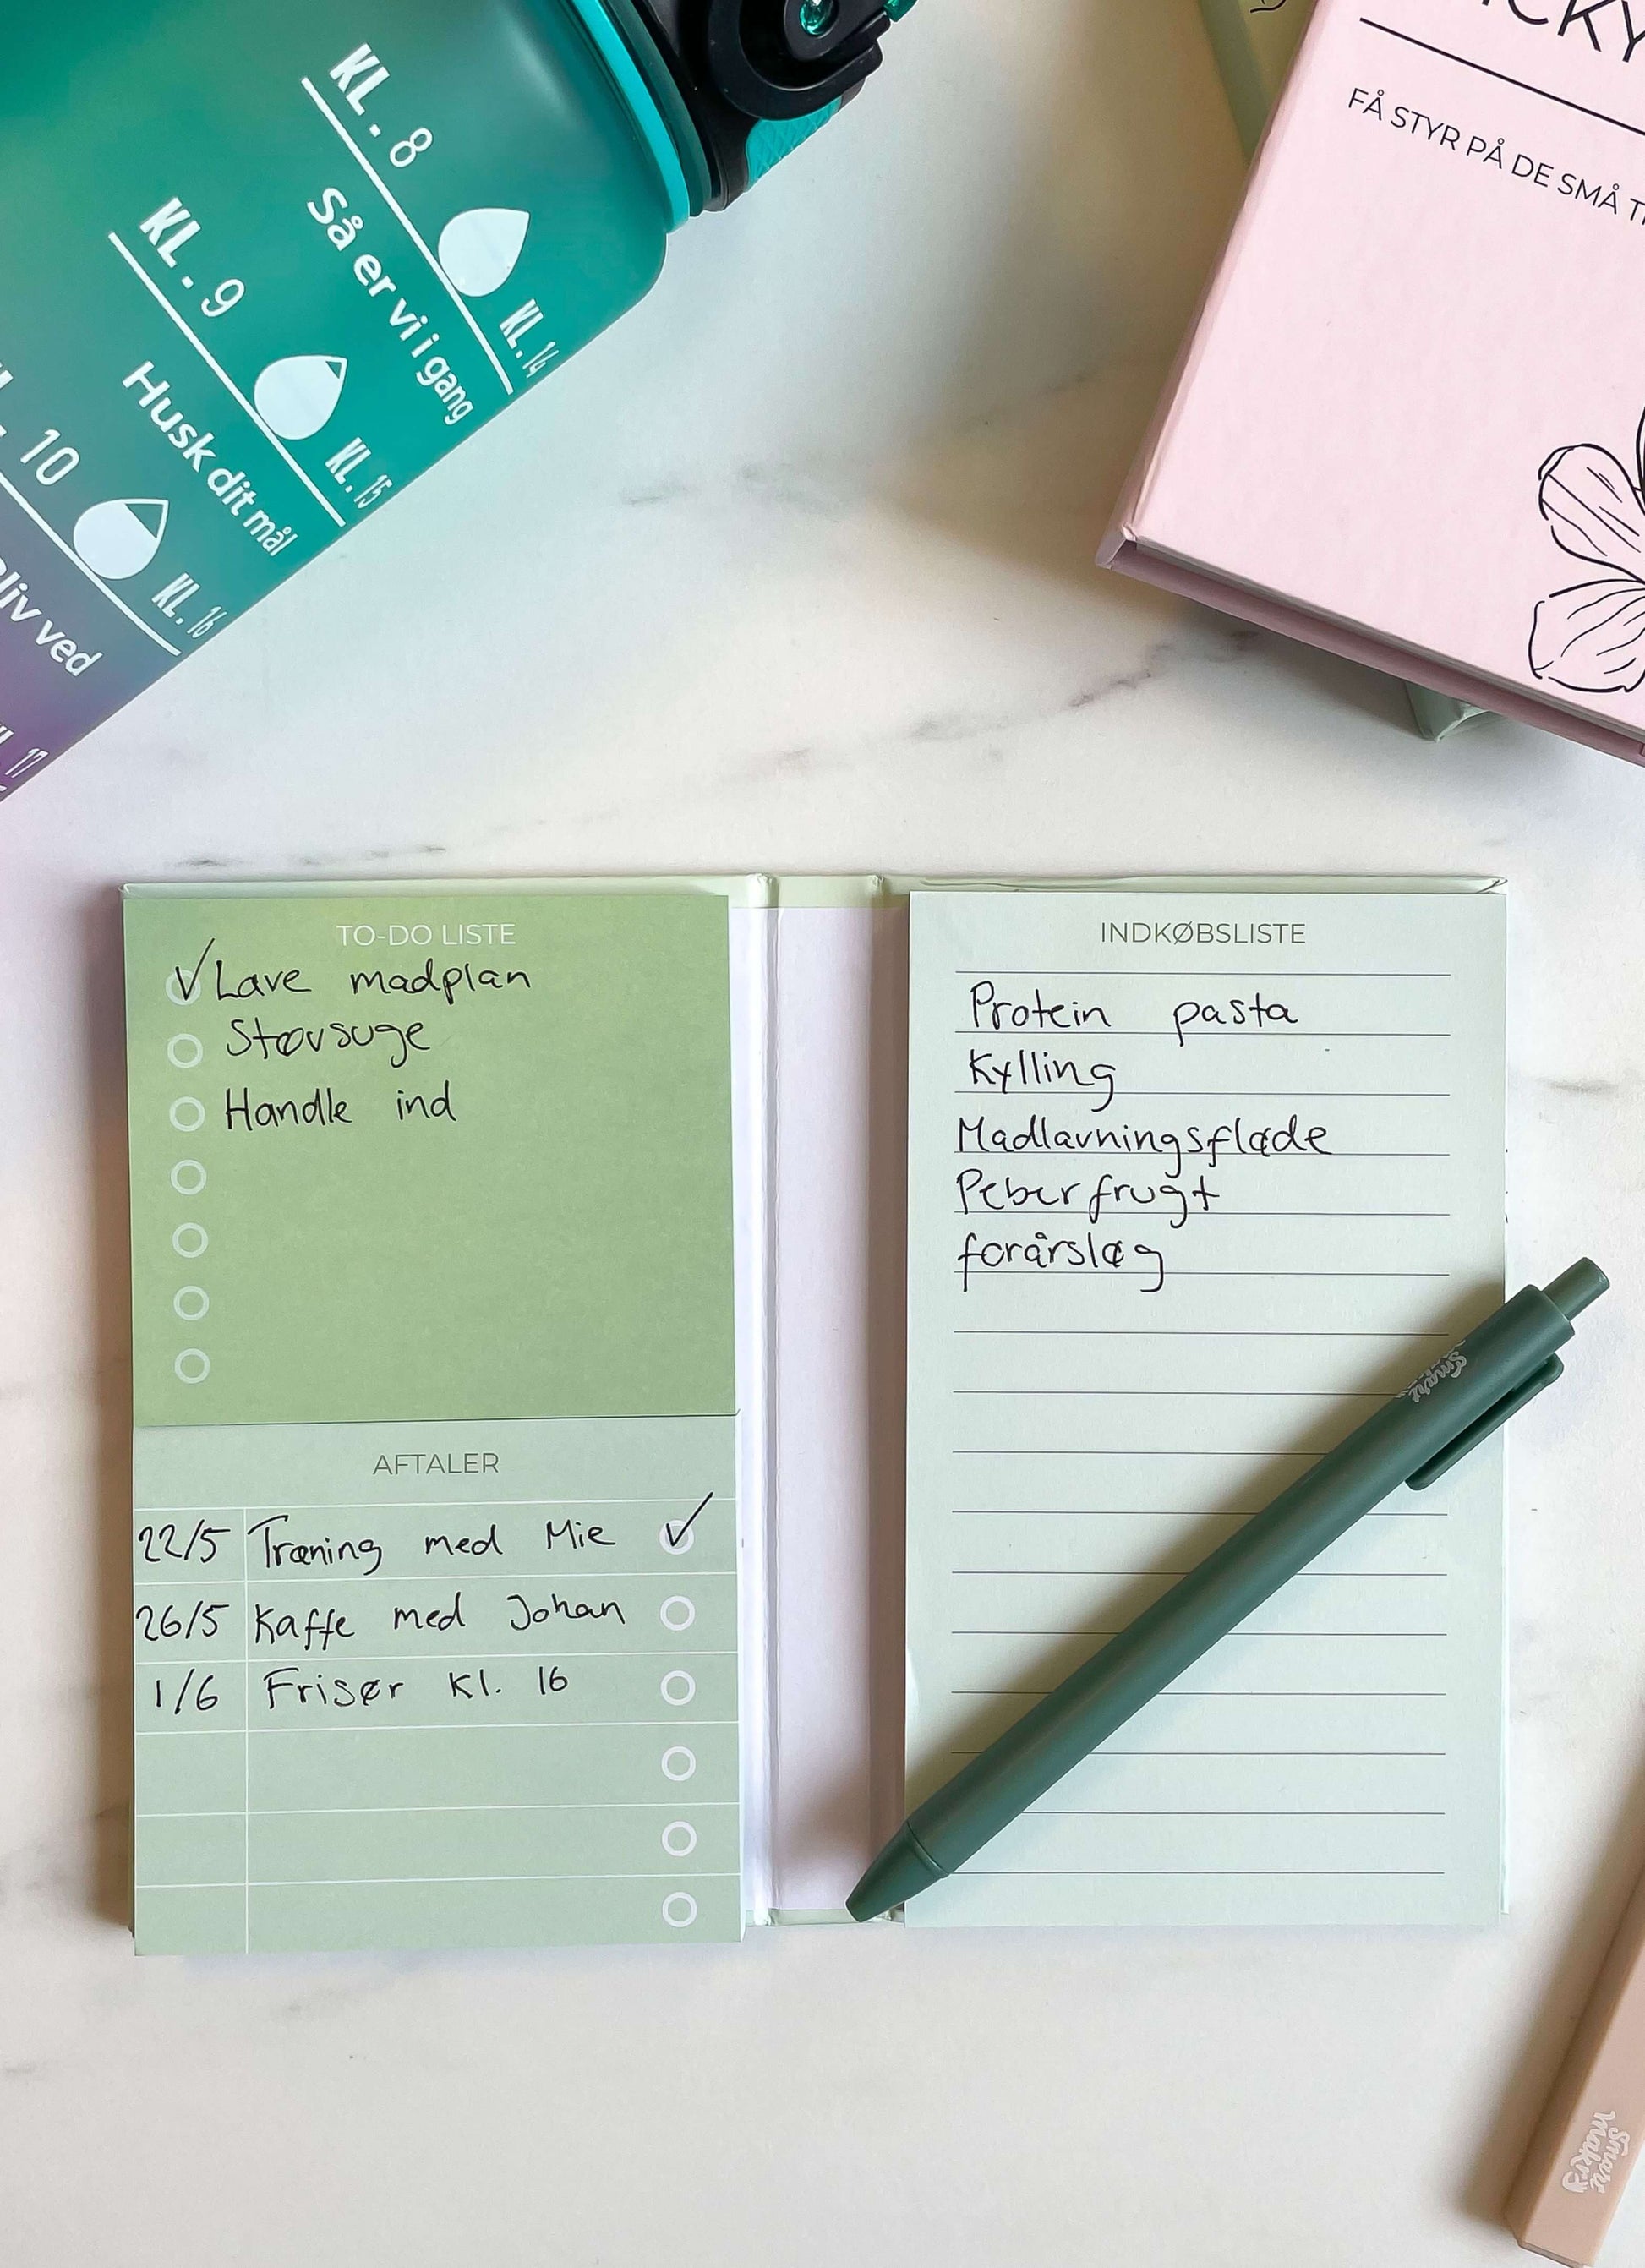 KL. 8
Så er vi i gang
KL. 14
KL. 9
Husk dit mål
KL. 15
10
Bliv ved
KL. 16
17
FÅ STYR PÅ DE SMÅ
TO-DO LISTE
Lave madplan
Støvsuge
Handle ind
AFTALER
22/5 Træning med Mie
26/5 Kaffe med Johan
1/6 Frisør kl. 16
INDKØBSLISTE
Protein pasta
Kylling
Madlavningsfløde
Peberfrugt
forårsløg
Smart
Smart
makers